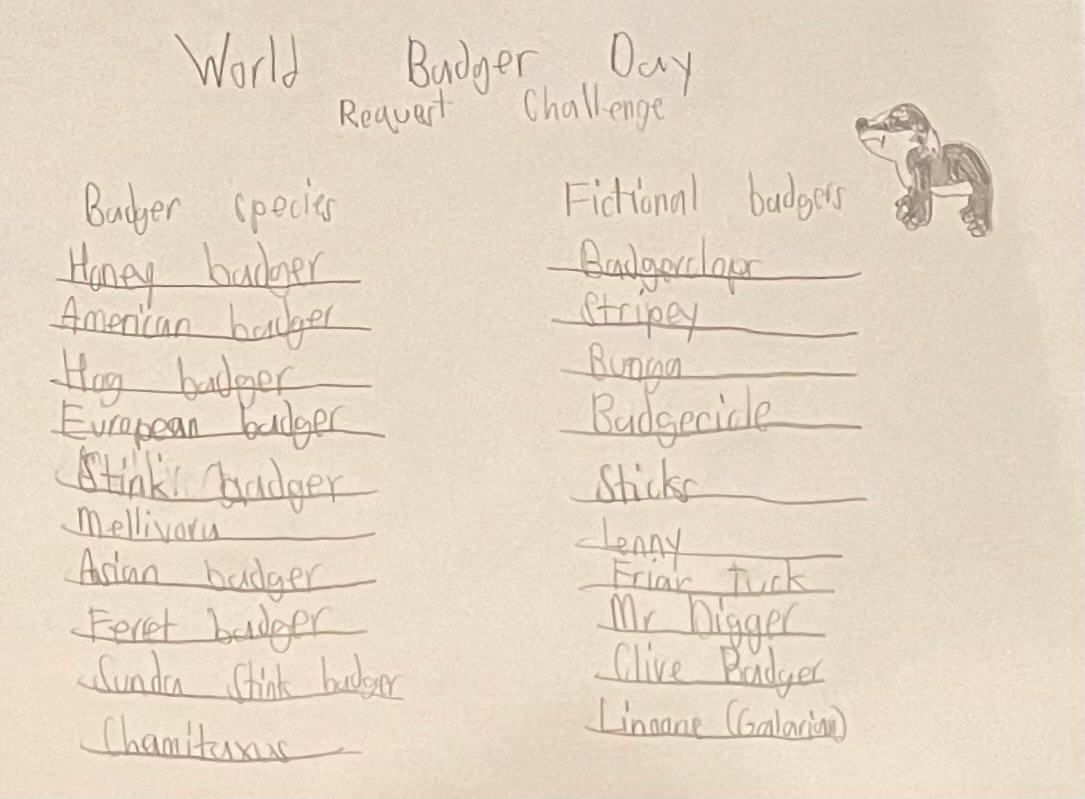 World Badger Day
Request Challenge
Badger species
Honey badger
American badger
Hog badger
European badger
Stink badger
Mellivora
Asian badger
Ferret badger
Sunda Stink badger
Chamitaxus
Fictional badgers
Stripey
Bunga
Badgecicle
Sticks
Lenny
Friar Tuck
Mr Digger
Clive Badger
Linoone (Galarian)